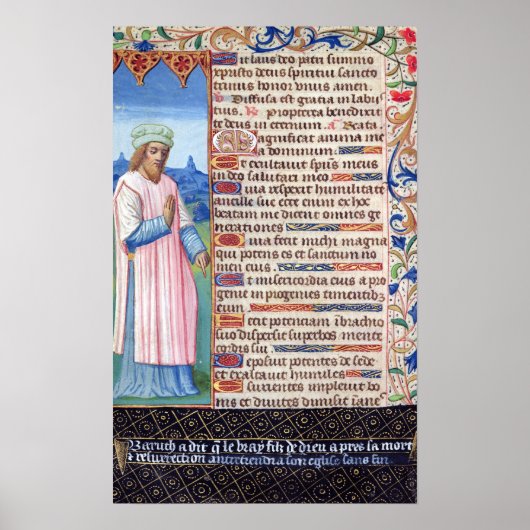 Sit laus deo patri summo
xpristo decus spiritui sancto
unus honor unus amen.
Diffusa est gratia in labijs
tuis. R propterea benedixit
te deus in eternum a Beata
Magnificat anima mea
a dominum.
Et exultavit spūs meus
in deo salutari meo
Quia respexit humilitatem
ancille sue ecce enim ex hoc
beatam me dicent omnes ge
nerationes
Quia fecit michi magna
qui potens es et sanctum no
men eius.
Et misericordia eius a pro
genie in progenies timentibus
eum
Fecit potenciam ī brachio
suo dispersit superbos mente
cordis sui
Deposuit potentes de sede
et exaltavit humiles
Esurientes implevit bo
nis et divites dimisit inanes
Baruch a dit q̄ le vray filz de dieu apres sa mort
& resurrection entretiendra son eglise sans fin.